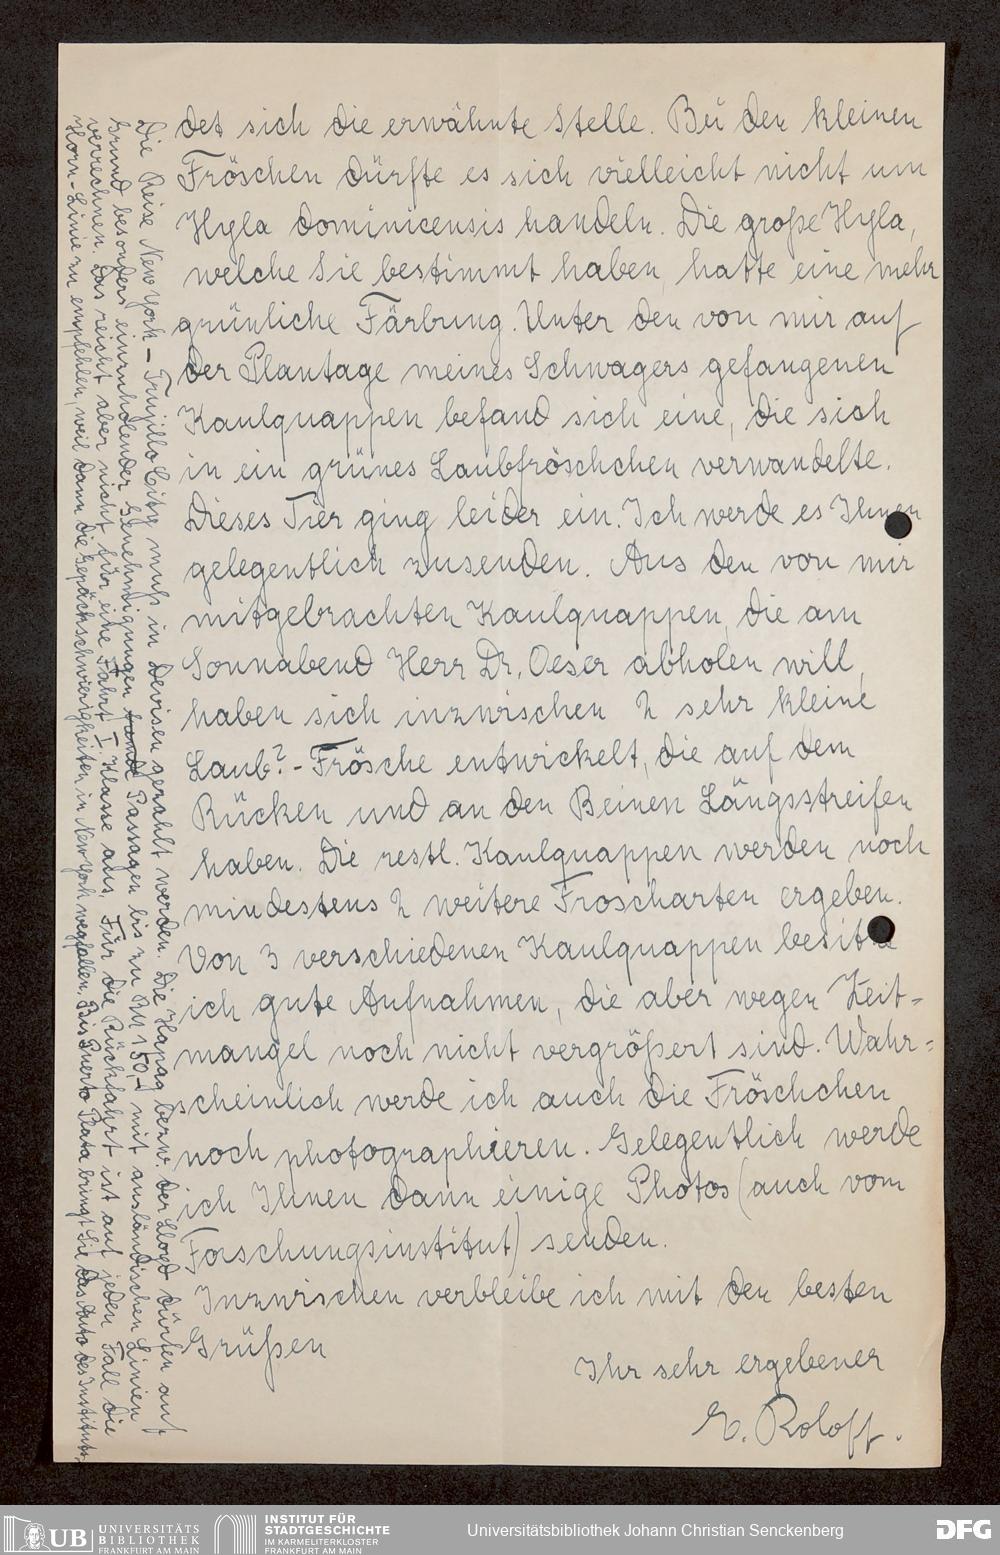 det sich die erwähnte Stelle. Bei den kleinen
Fröschen dürfte es sich vielleicht nicht um
Hyla dominicensis handeln. Die große Hyla,
welche Sie bestimmt haben, hatte eine mehr
grünliche Färbung. Unter den von mir auf
der Plantage meines Schwagers gefangenen
Kaulquappen befand sich eine, die sich
in ein grünes Laubfröschchen verwandelte.
Dieses Tier ging leider ein. Ich werde es Ihnen
gelegentlich zusenden. Aus den von mir
mitgebrachten Kaulquappen, die am
Sonnabend Herr Dr. Oeser abholen will,
haben sich inzwischen 2 sehr kleine
Laub?-Frösche entwickelt, die auf dem
Rücken und an den Beinen Längsstreifen
haben. Die restl. Kaulquappen werden noch
mindestens 2 weitere Froscharten ergeben.
Von 3 verschiedenen Kaulquappen besitze
ich gute Aufnahmen, die aber wegen Zeit=
mangel noch nicht vergrößert sind. Wahr=
scheinlich werde ich auch die Fröschchen
noch photographieren. Gelegentlich werde
ich Ihnen dann einige Photos (auch vom
Forschungsinstitut) senden.
Inzwischen verbleibe ich mit den besten
Grüßen
Ihr sehr ergebener
E. Roloff.
Die Reise New York – Trujillo City muß in Devisen gezahlt werden. Die Hapag bezw. der Lloyd dürfen auf
Grund besonders einzuholender Genehmigungen Passagen bis zu RM 150,- mit ausländischen Linien
verrechnen. Das reicht aber nicht für eine Fahrt I. Klasse aus. Für die Rückfahrt ist auf jeden Fall die
Horn-Linie zu empfehlen, weil dann die Gepäckschwierigkeiten in New York wegfallen. Bis Puerto Plata bringt Sie das Auto des Instituts.
UB UNIVERSITÄTS
BIBLIOTHEK
FRANKFURT AM MAIN
INSTITUT FÜR
STADTGESCHICHTE
IM KARMELITERKLOSTER
FRANKFURT AM MAIN
Universitätsbibliothek Johann Christian Senckenberg
DFG